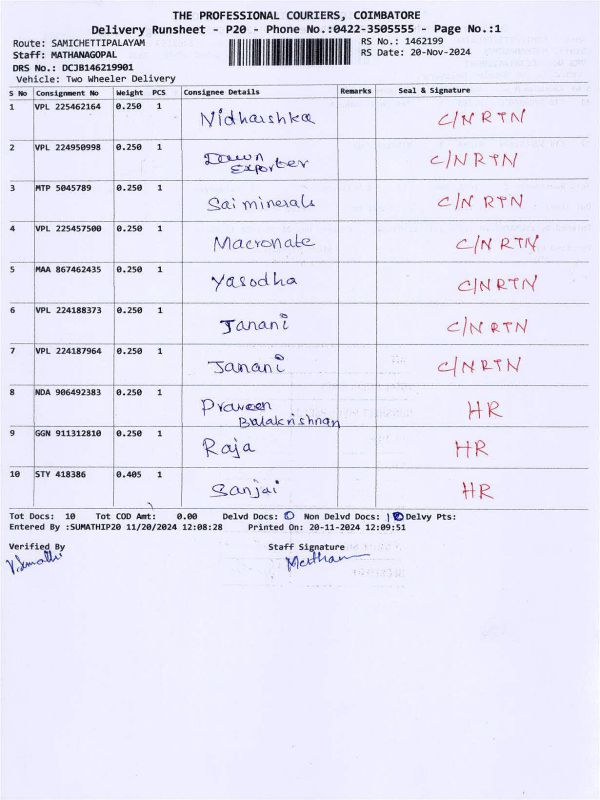 THE PROFESSIONAL COURIERS, COIMBATORE
Delivery Runsheet - P20 - Phone No.:0422-3505555 - Page No.:1
Route: SAMICHETTIPALAYAM RS No.: 1462199
Staff: MATHANAGOPAL RS Date: 20-Nov-2024
DRS No.: DCJB146219901
Vehicle: Two Wheeler Delivery
S No Consignment No Weight PCS Consignee Details Remarks Seal & Signature
1 VPL 225462164 0.250 1 Nidharshka C/N RTN
2 VPL 224950998 0.250 1 Dawn Exporter C/N RTN
3 MTP 5045789 0.250 1 Sai minerals C/N RTN
4 VPL 225457500 0.250 1 Macronate C/N RTN
5 MAA 867462435 0.250 1 Yasodha C/N RTN
6 VPL 224188373 0.250 1 Janani C/N RTN
7 VPL 224187964 0.250 1 Janani C/N RTN
8 NDA 906492383 0.250 1 Praveen Balakrishnan HR
9 GGN 911312810 0.250 1 Raja HR
10 STY 418386 0.405 1 Sanjai HR
Tot Docs: 10 Tot COD Amt: 0.00 Delvd Docs: 0 Non Delvd Docs: 10 Delvy Pts:
Entered By :SUMATHIP20 11/20/2024 12:08:28 Printed On: 20-11-2024 12:09:51
Verified By Staff Signature